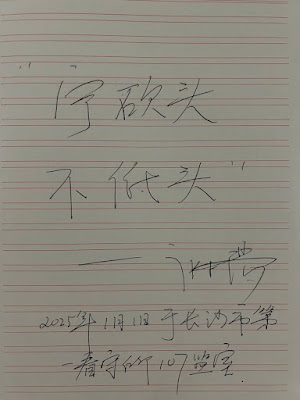 “宁砍头
不低头”
——
2025年1月1日于长沙市第
一看守所107监室